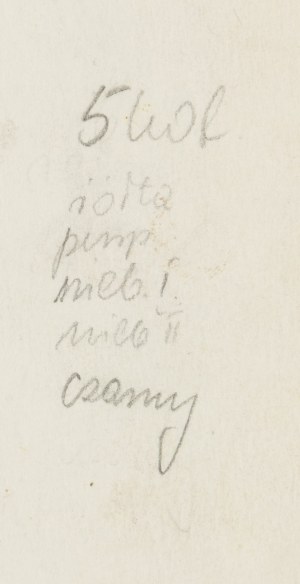 5 kol
żółta
purp.
nieb. I.
nieb II
czarny